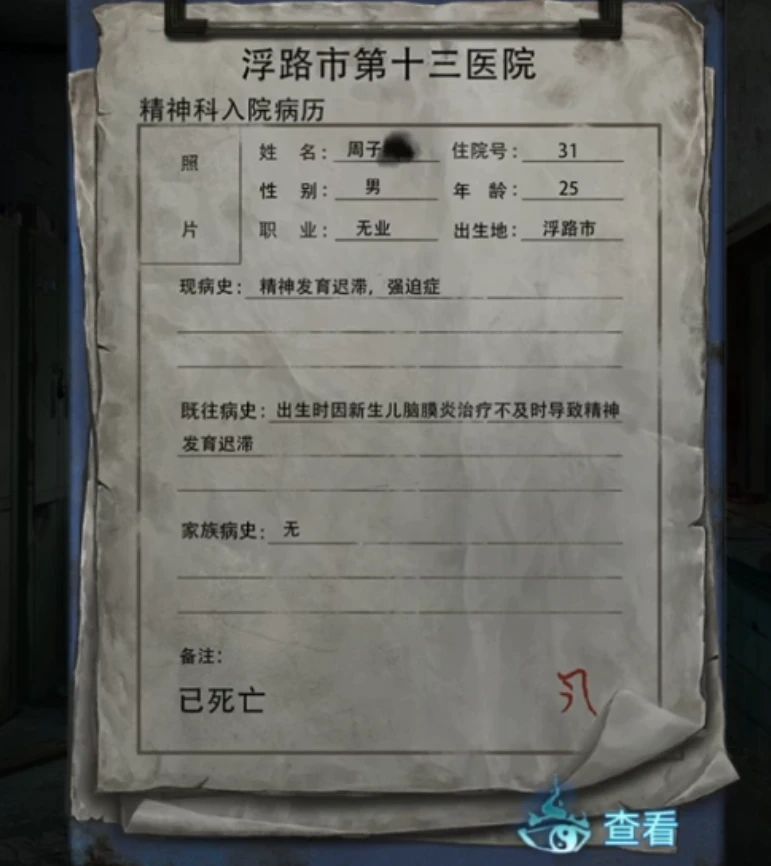 浮路市第十三医院
精神科入院病历
照片
姓 名： 周子 住院号： 31
性 别： 男 年 龄： 25
职 业： 无业 出生地： 浮路市
现病史： 精神发育迟滞，强迫症
既往病史：出生时因新生儿脑膜炎治疗不及时导致精神
发育迟滞
家族病史： 无
备注：
已死亡
查看